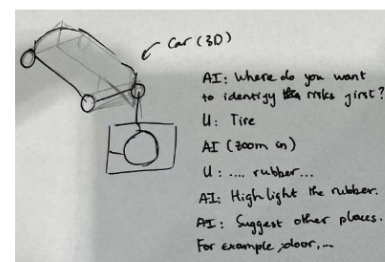 Car (3D)
AI: Where do you want
to identify risks first?
U: Tire
AI (zoom in)
U: .... rubber...
AI: Highlight the rubber.
AI: Suggest other places.
For example, door, ...